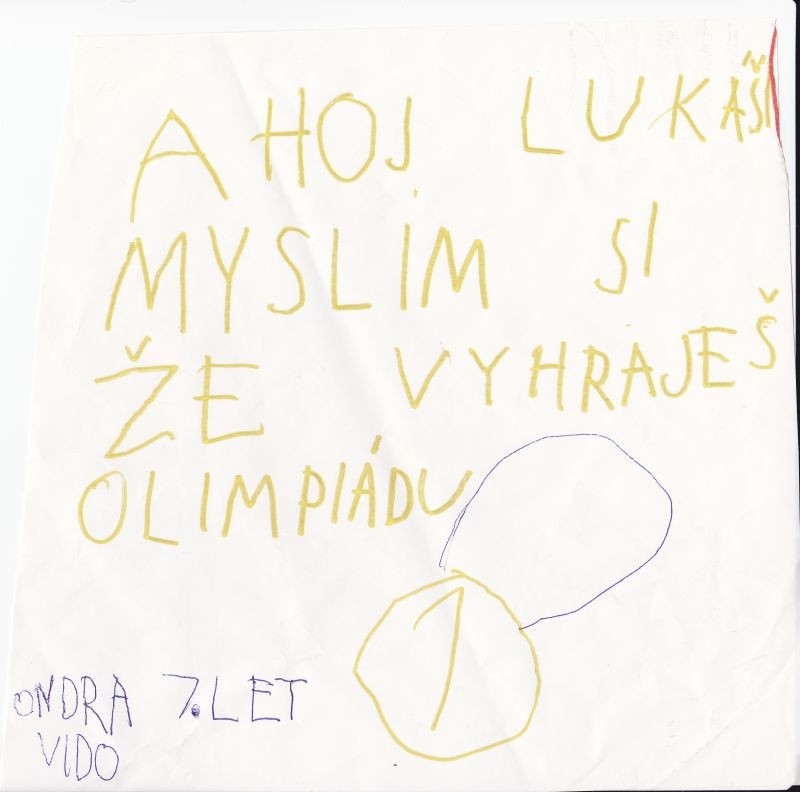 AHOJ LUKÁŠI
MYSLÍM SI
ŽE VYHRAJEŠ
OLIMPIÁDU
1
ONDRA 7. LET
VIDO